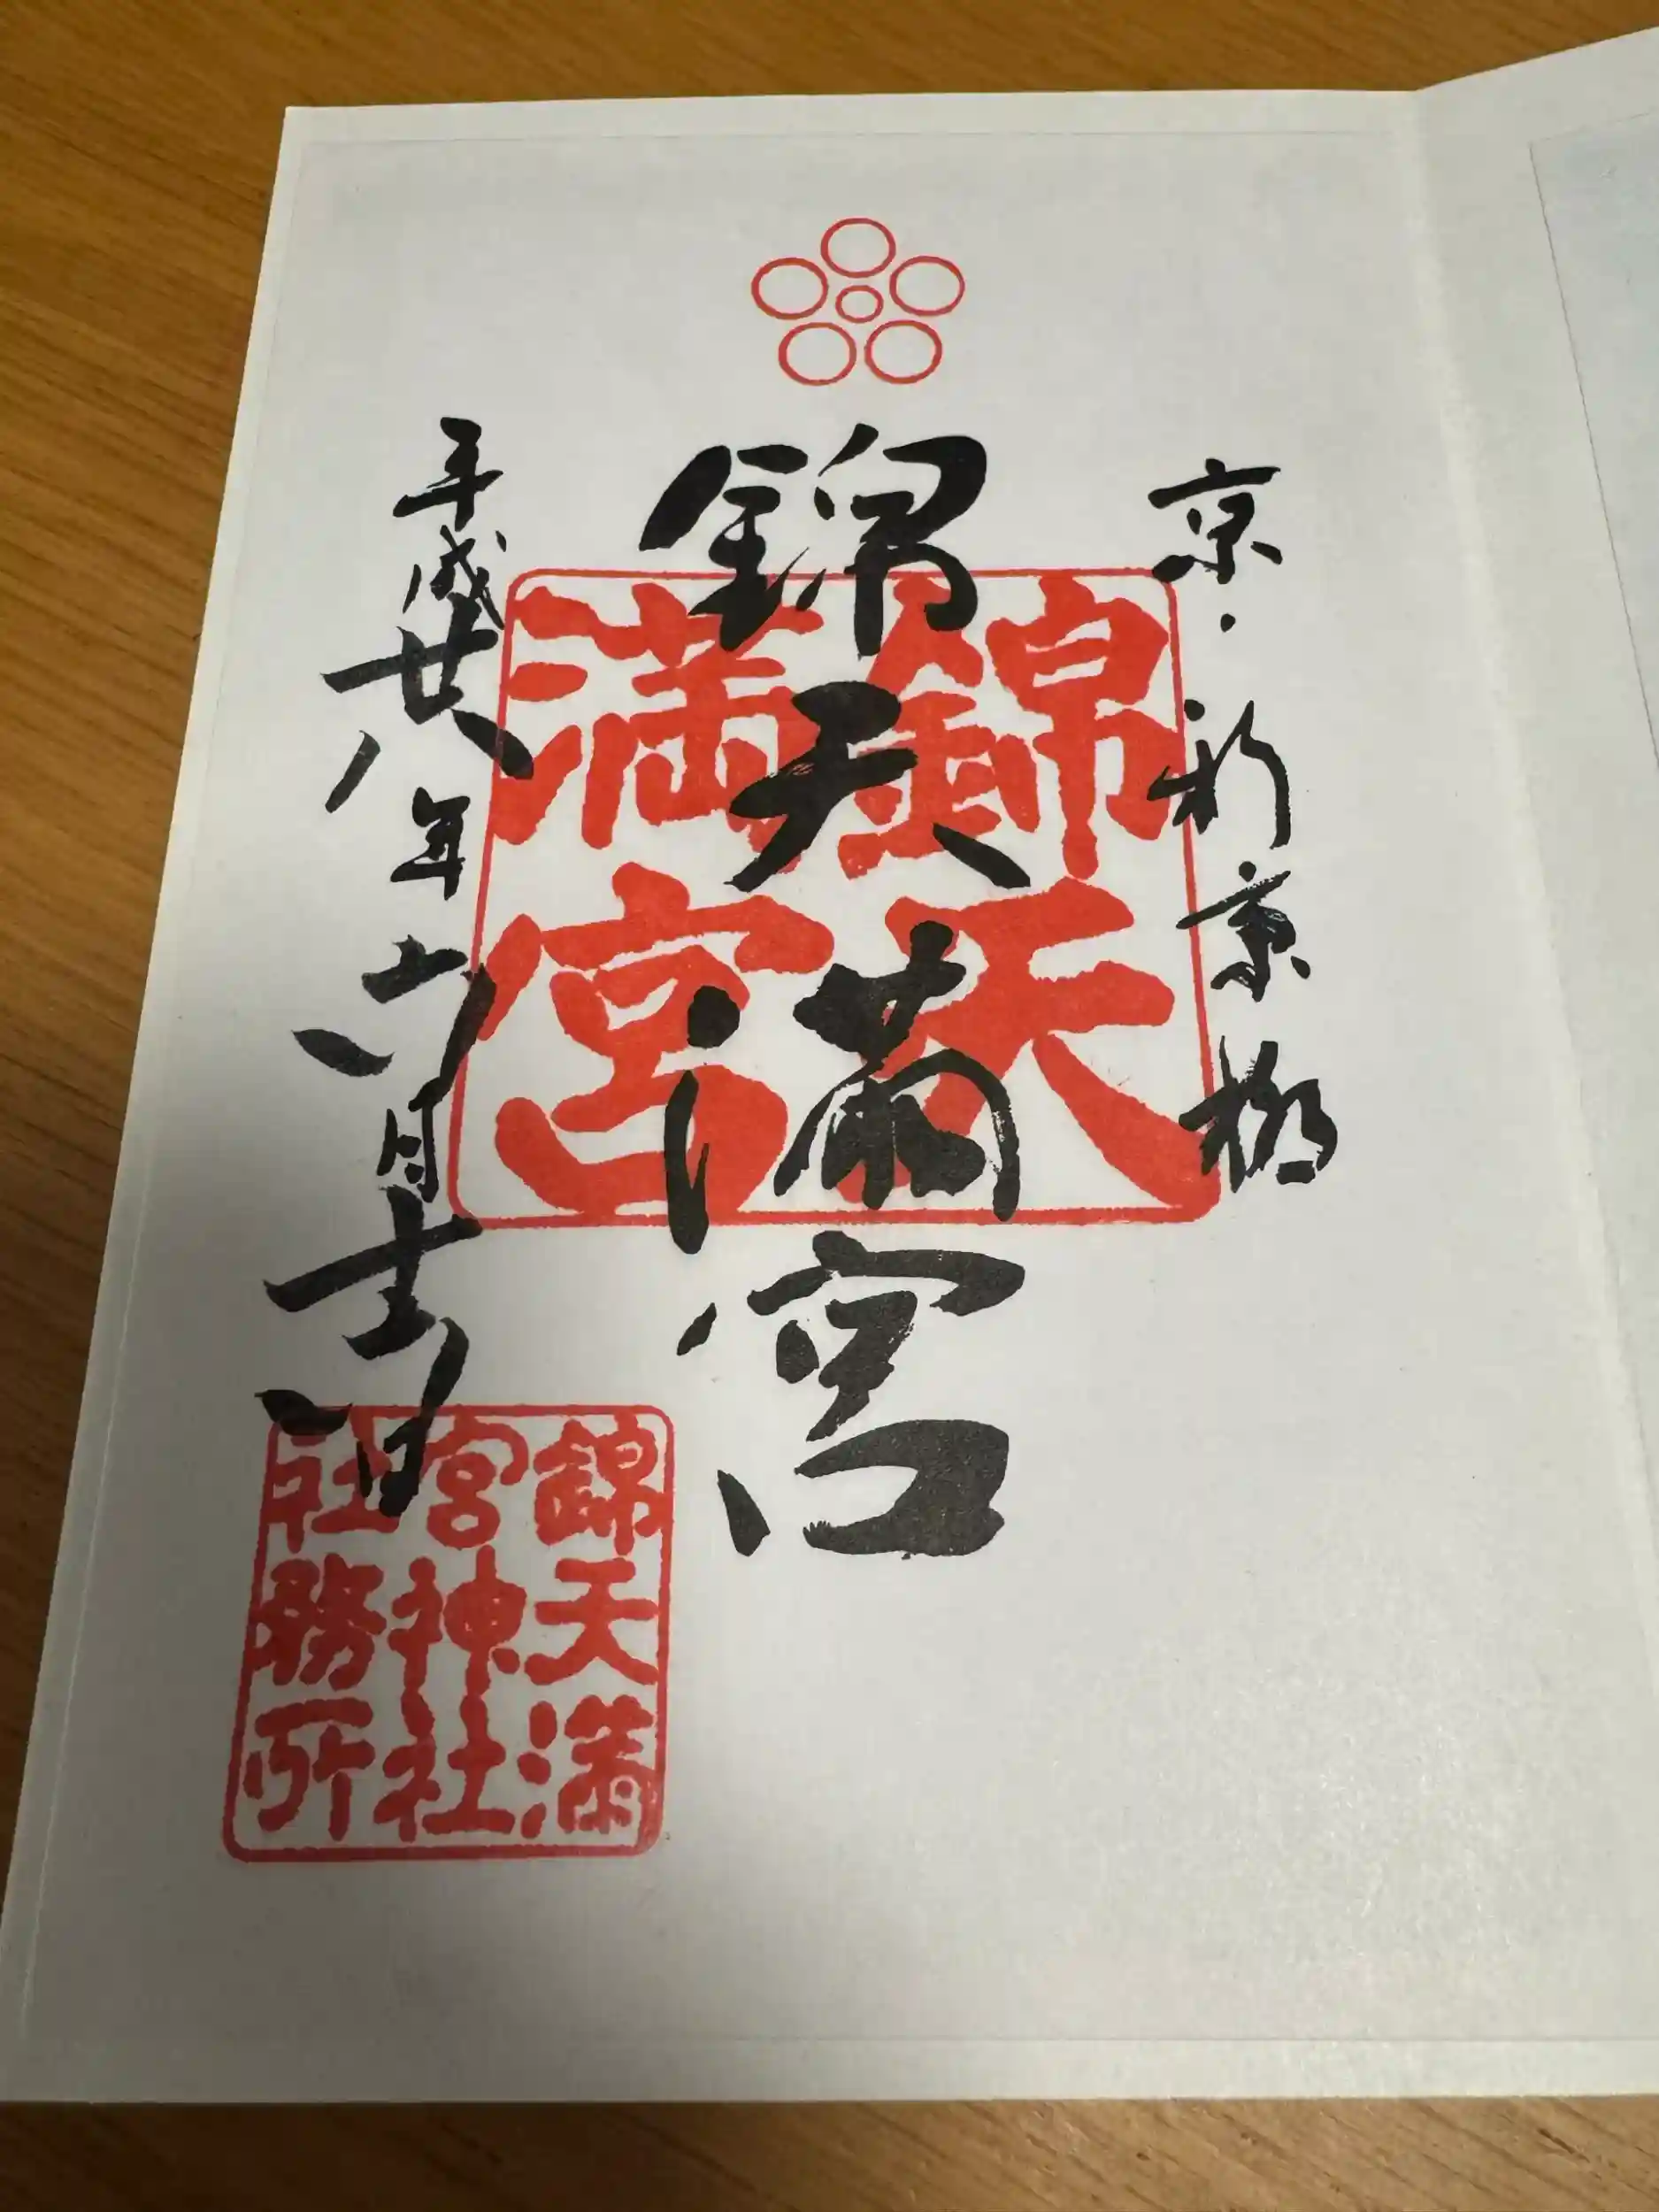 京・新京極
錦天満宮
錦天
満宮
平成廿八年六月十六日
錦天満
宮神社
社務所